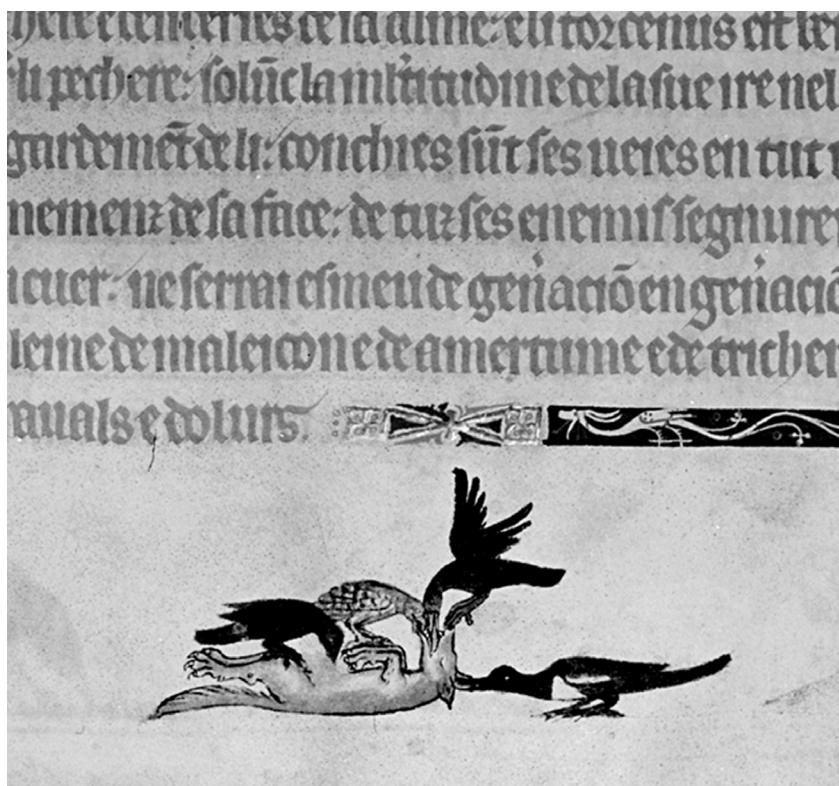 e li torcenus est ben
li pechere: solūc la ml'titudine de la sue ire ne l
gardemēt de li: conchies sūt ses ueies en tut
nemenz de sa face: de tuz ses enemis segnure
cuer: ne serrai esmeu de gen'aciō en gen'aciō
leine de maleicon e de amertume e de tricher
auals e dolurs.